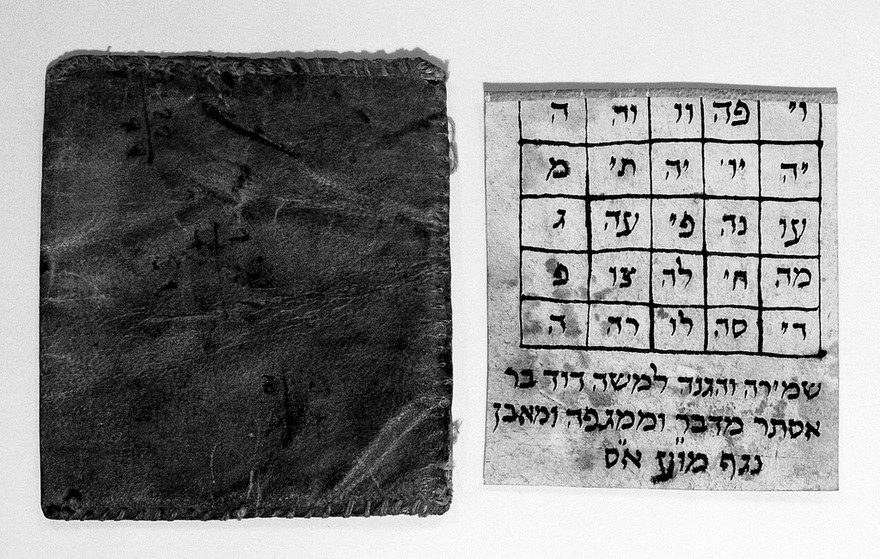 וי פה וו וה ה
יה יו' יה תי מ
עו נה פי עה ג
מה חי לה צו פ
די סה לו רה ה
שמירה והגנה למשה דוד בר
אסתר מדבר וממגפה ומאבן
נגף מו"ע א"ס